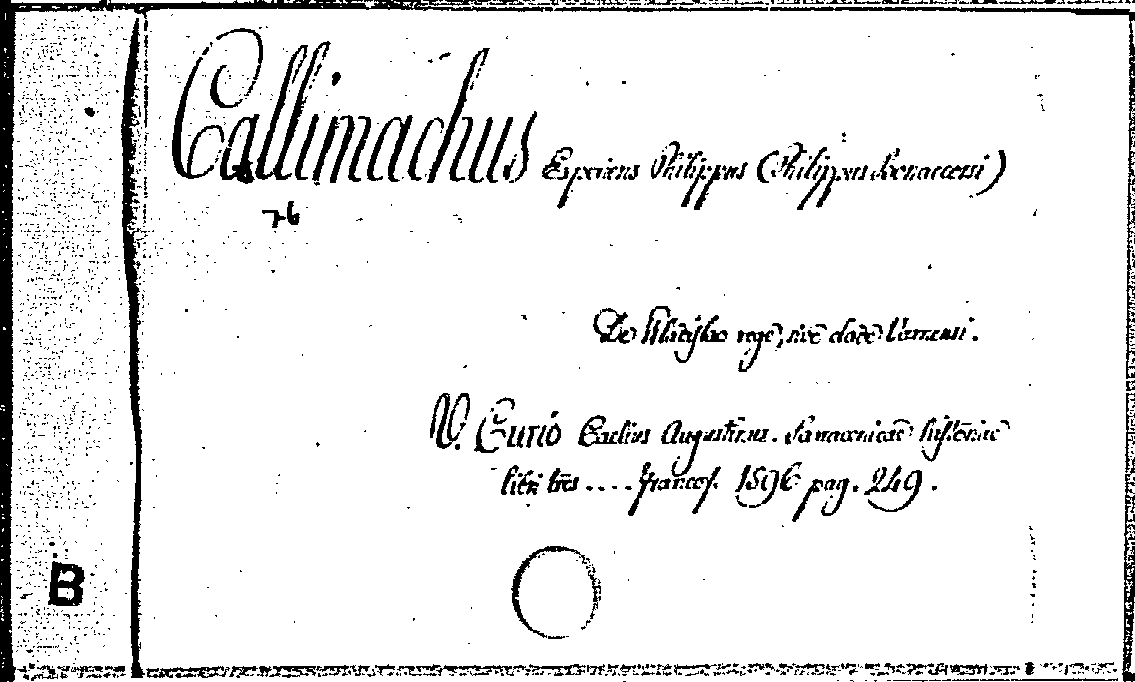 Callimachus Experiens Philippus (Philippus Bonaccorsi)
76
De Wladyslao rege, sive clade Varnensi.
V. Curio Caelius Augustinus. Saracenicae historiae
libri tres .... Francof. 1596 pag. 249.
B